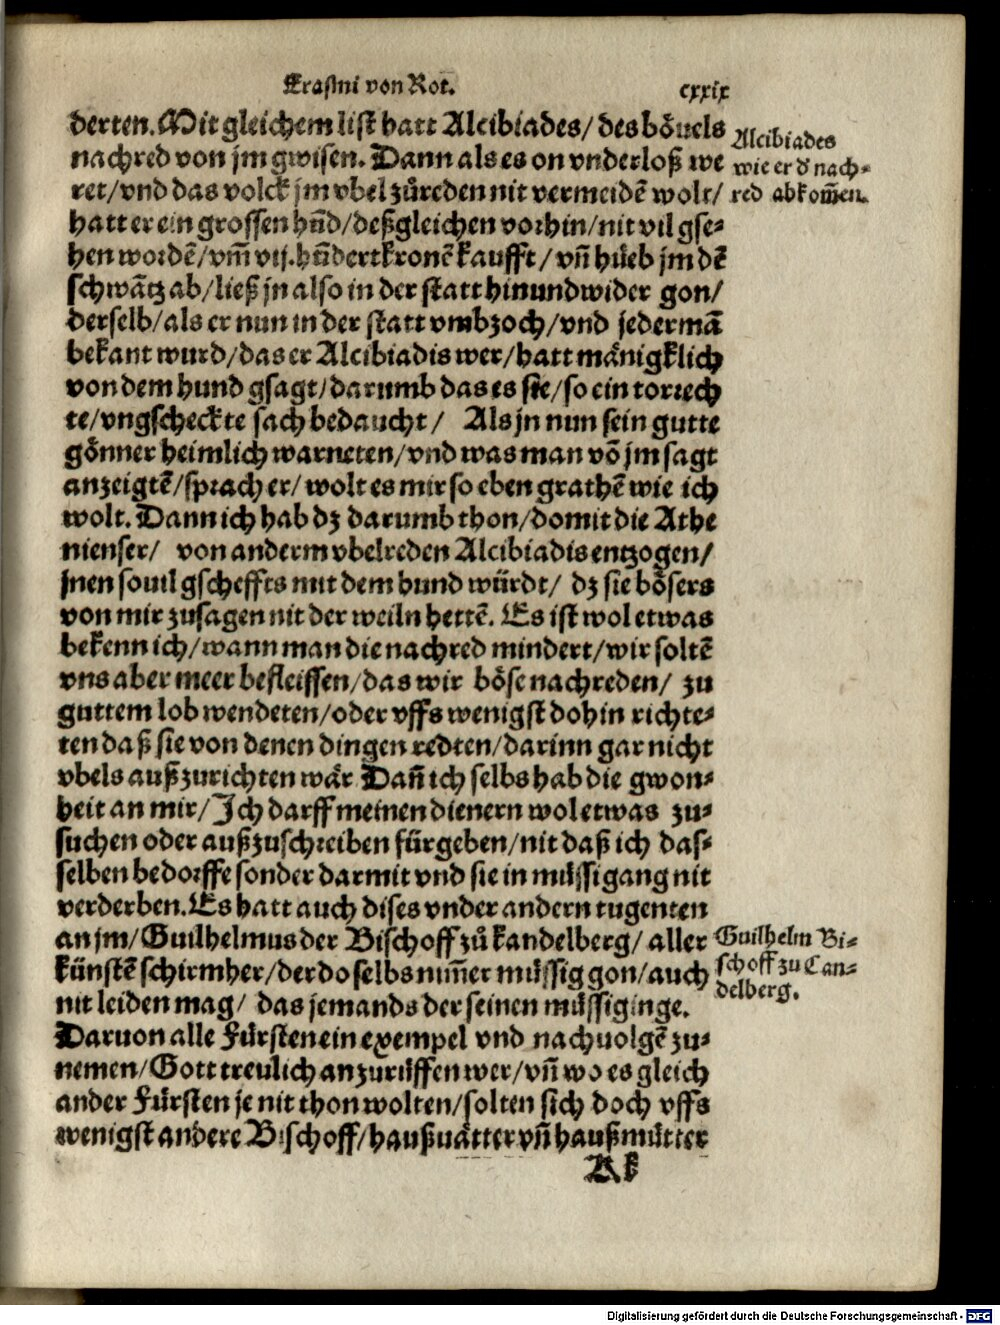 Erasmi von Rot.
cxxix
derten. Mit gleichem list hatt Alcibiades/ des bo̊uels
nachred von jm gwisen. Dann als es on vnderloß we
ret/vnd das volck jm vbel zůreden nit vermeidē wolt/
hatt er ein grossen hūd/deßgleichen vorhin/nit vil gse⸗
hen wordē/vm̃ vij.hūdert kronē kaufft/vñ hůeb jm dē
schwa̎tz ab/ließ jn also in der statt hin und wider gon/
derselb/als er nun in der statt vmbzoch/vnd jedermā
bekant wurd/das er Alcibiadis wer/hatt mänigklich
von dem hund gsagt/darumb das es sie/so ein torrech
te/vngscheckte sach bedaucht/ Als jn nun sein gutte
gönner heimlich warneten/vnd was man vō jm sagt
anzeigtē/sprach er/wolt es mir so eben grathē wie ich
wolt. Dann ich hab dz darumb thon/domit die Athe
nienser/ von anderm vbelreden Alcibiadis entzogen/
jnen souil gscheffts mit dem hund würdt/ dz sie bösers
von mir zusagen nit der weiln hettē. Es ist wol etwas
bekenn ich/wann man die nachred mindert/wir soltē
vns aber meer befleissen/das wir böse nachreden/ zu
guttem lob wendeten/oder vffs wenigst dohin richte⸗
ten daß sie von denen dingen redten/darinn gar nicht
vbels außzurichten wär. Dañ ich selbs hab die gwon⸗
heit an mir/Ich darff meinen dienern wol etwas zu⸗
suchen oder außzuschreiben fürgeben/nit daß ich das⸗
selben bedorffe sonder darmit vnd sie in müssigang nit
verderben. Es hatt auch dises vnder andern tugenten
an jm/Guilhelmus der Bischoff zů kandelberg/ aller
künstē schirmher/der do selbs nim̃er müssig gon/auch
nit leiden mag/ das jemands der seinen müssiginge.
Daruon alle Fürsten ein exempel vnd nachuolgē zu⸗
nemen/Gott treulich anzurüffen wer/vñ wo es gleich
ander Fürsten je nit thon wolten/solten sich doch vffs
wenigst andere Bischoff/haußuätter vñ haußmütter
Kk
Alcibiades
wie er d' nach⸗
red abkom̃en.
Guilhelm Bi⸗
schoff zu Can⸗
delberg.
Digitalisierung gefördert durch die Deutsche Forschungsgemeinschaft - DFG